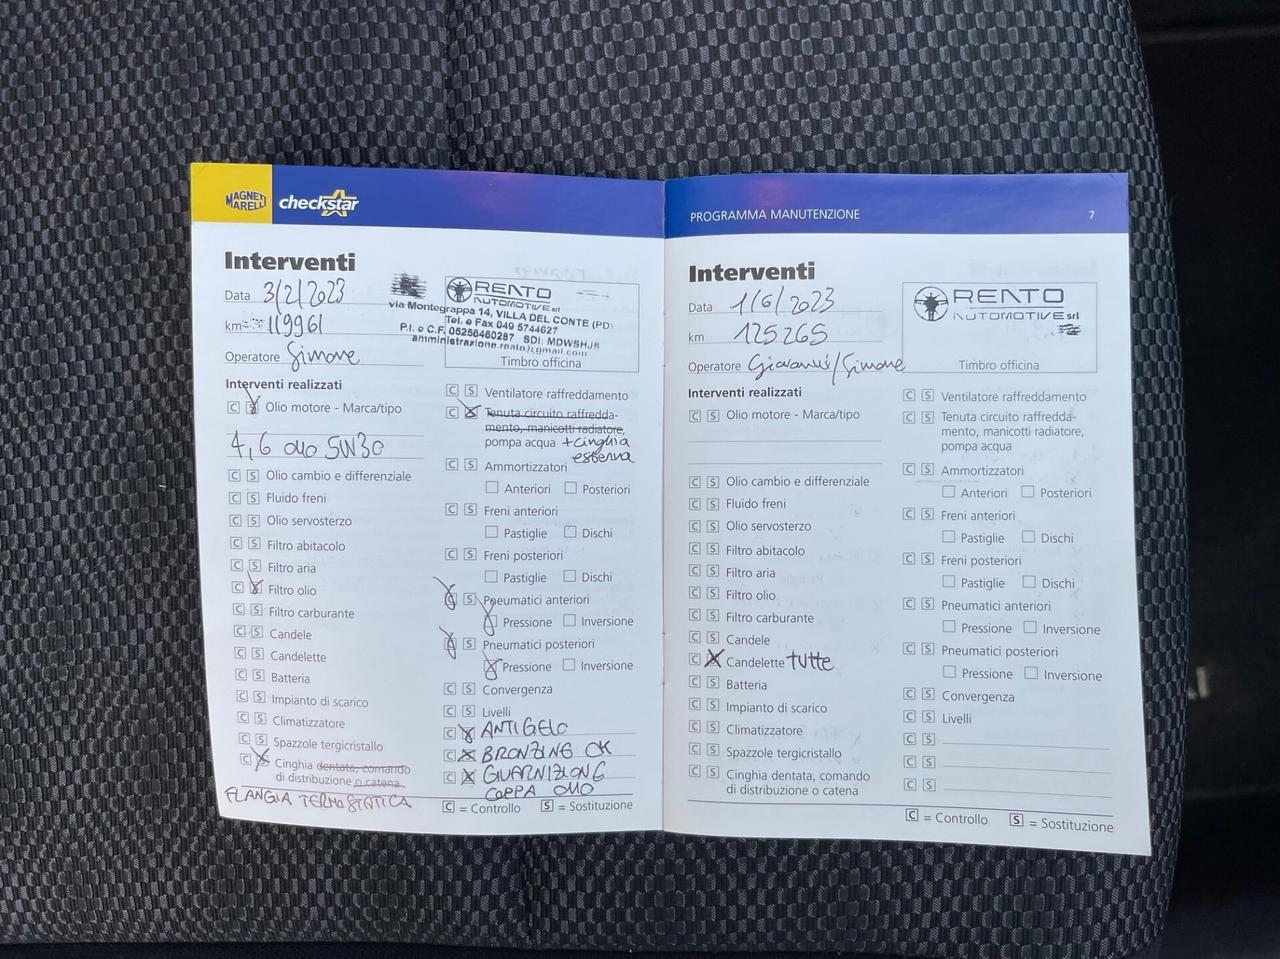 MAGNETI MARELLI
checkstar
Interventi
Data 3/2/2023
km 119961
Operatore Simone
RENTO
AUTOMOTIVE srl
via Montegrappa 14, VILLA DEL CONTE (PD)
Tel. e Fax 049 5744627
P.I. e C.F. 05256460287 SDI: MDWSHJ5
amministrazione.reato@gmail.com
Timbro officina
Interventi realizzati
C S Olio motore - Marca/tipo
4,6 olio 5W30
C S Olio cambio e differenziale
C S Fluido freni
C S Olio servosterzo
C S Filtro abitacolo
C S Filtro aria
C S Filtro olio
C S Filtro carburante
C S Candele
C S Candelette
C S Batteria
C S Impianto di scarico
C S Climatizzatore
C S Spazzole tergicristallo
C S Cinghia dentata, comando
di distribuzione o catena
FLANGIA TERMOSTATICA
C S Ventilatore raffreddamento
C S Tenuta circuito raffredda-
mento, manicotti radiatore,
pompa acqua + cinghia
esterna
C S Ammortizzatori
Anteriori Posteriori
C S Freni anteriori
Pastiglie Dischi
C S Freni posteriori
Pastiglie Dischi
C S Pneumatici anteriori
Pressione Inversione
C S Pneumatici posteriori
Pressione Inversione
C S Convergenza
C S Livelli
C S ANTIGELO
C S BRONZINE OK
C S GUARNIZIONE
COPPA OLIO
C = Controllo S = Sostituzione
PROGRAMMA MANUTENZIONE 7
Interventi
Data 1/6/2023
km 125265
Operatore Giovanni/Simone
RENTO
AUTOMOTIVE srl
Timbro officina
Interventi realizzati
C S Olio motore - Marca/tipo
C S Olio cambio e differenziale
C S Fluido freni
C S Olio servosterzo
C S Filtro abitacolo
C S Filtro aria
C S Filtro olio
C S Filtro carburante
C S Candele
C S Candelette tutte
C S Batteria
C S Impianto di scarico
C S Climatizzatore
C S Spazzole tergicristallo
C S Cinghia dentata, comando
di distribuzione o catena
C S Ventilatore raffreddamento
C S Tenuta circuito raffredda-
mento, manicotti radiatore,
pompa acqua
C S Ammortizzatori
Anteriori Posteriori
C S Freni anteriori
Pastiglie Dischi
C S Freni posteriori
Pastiglie Dischi
C S Pneumatici anteriori
Pressione Inversione
C S Pneumatici posteriori
Pressione Inversione
C S Convergenza
C S Livelli
C S
C S
C S
C = Controllo S = Sostituzione